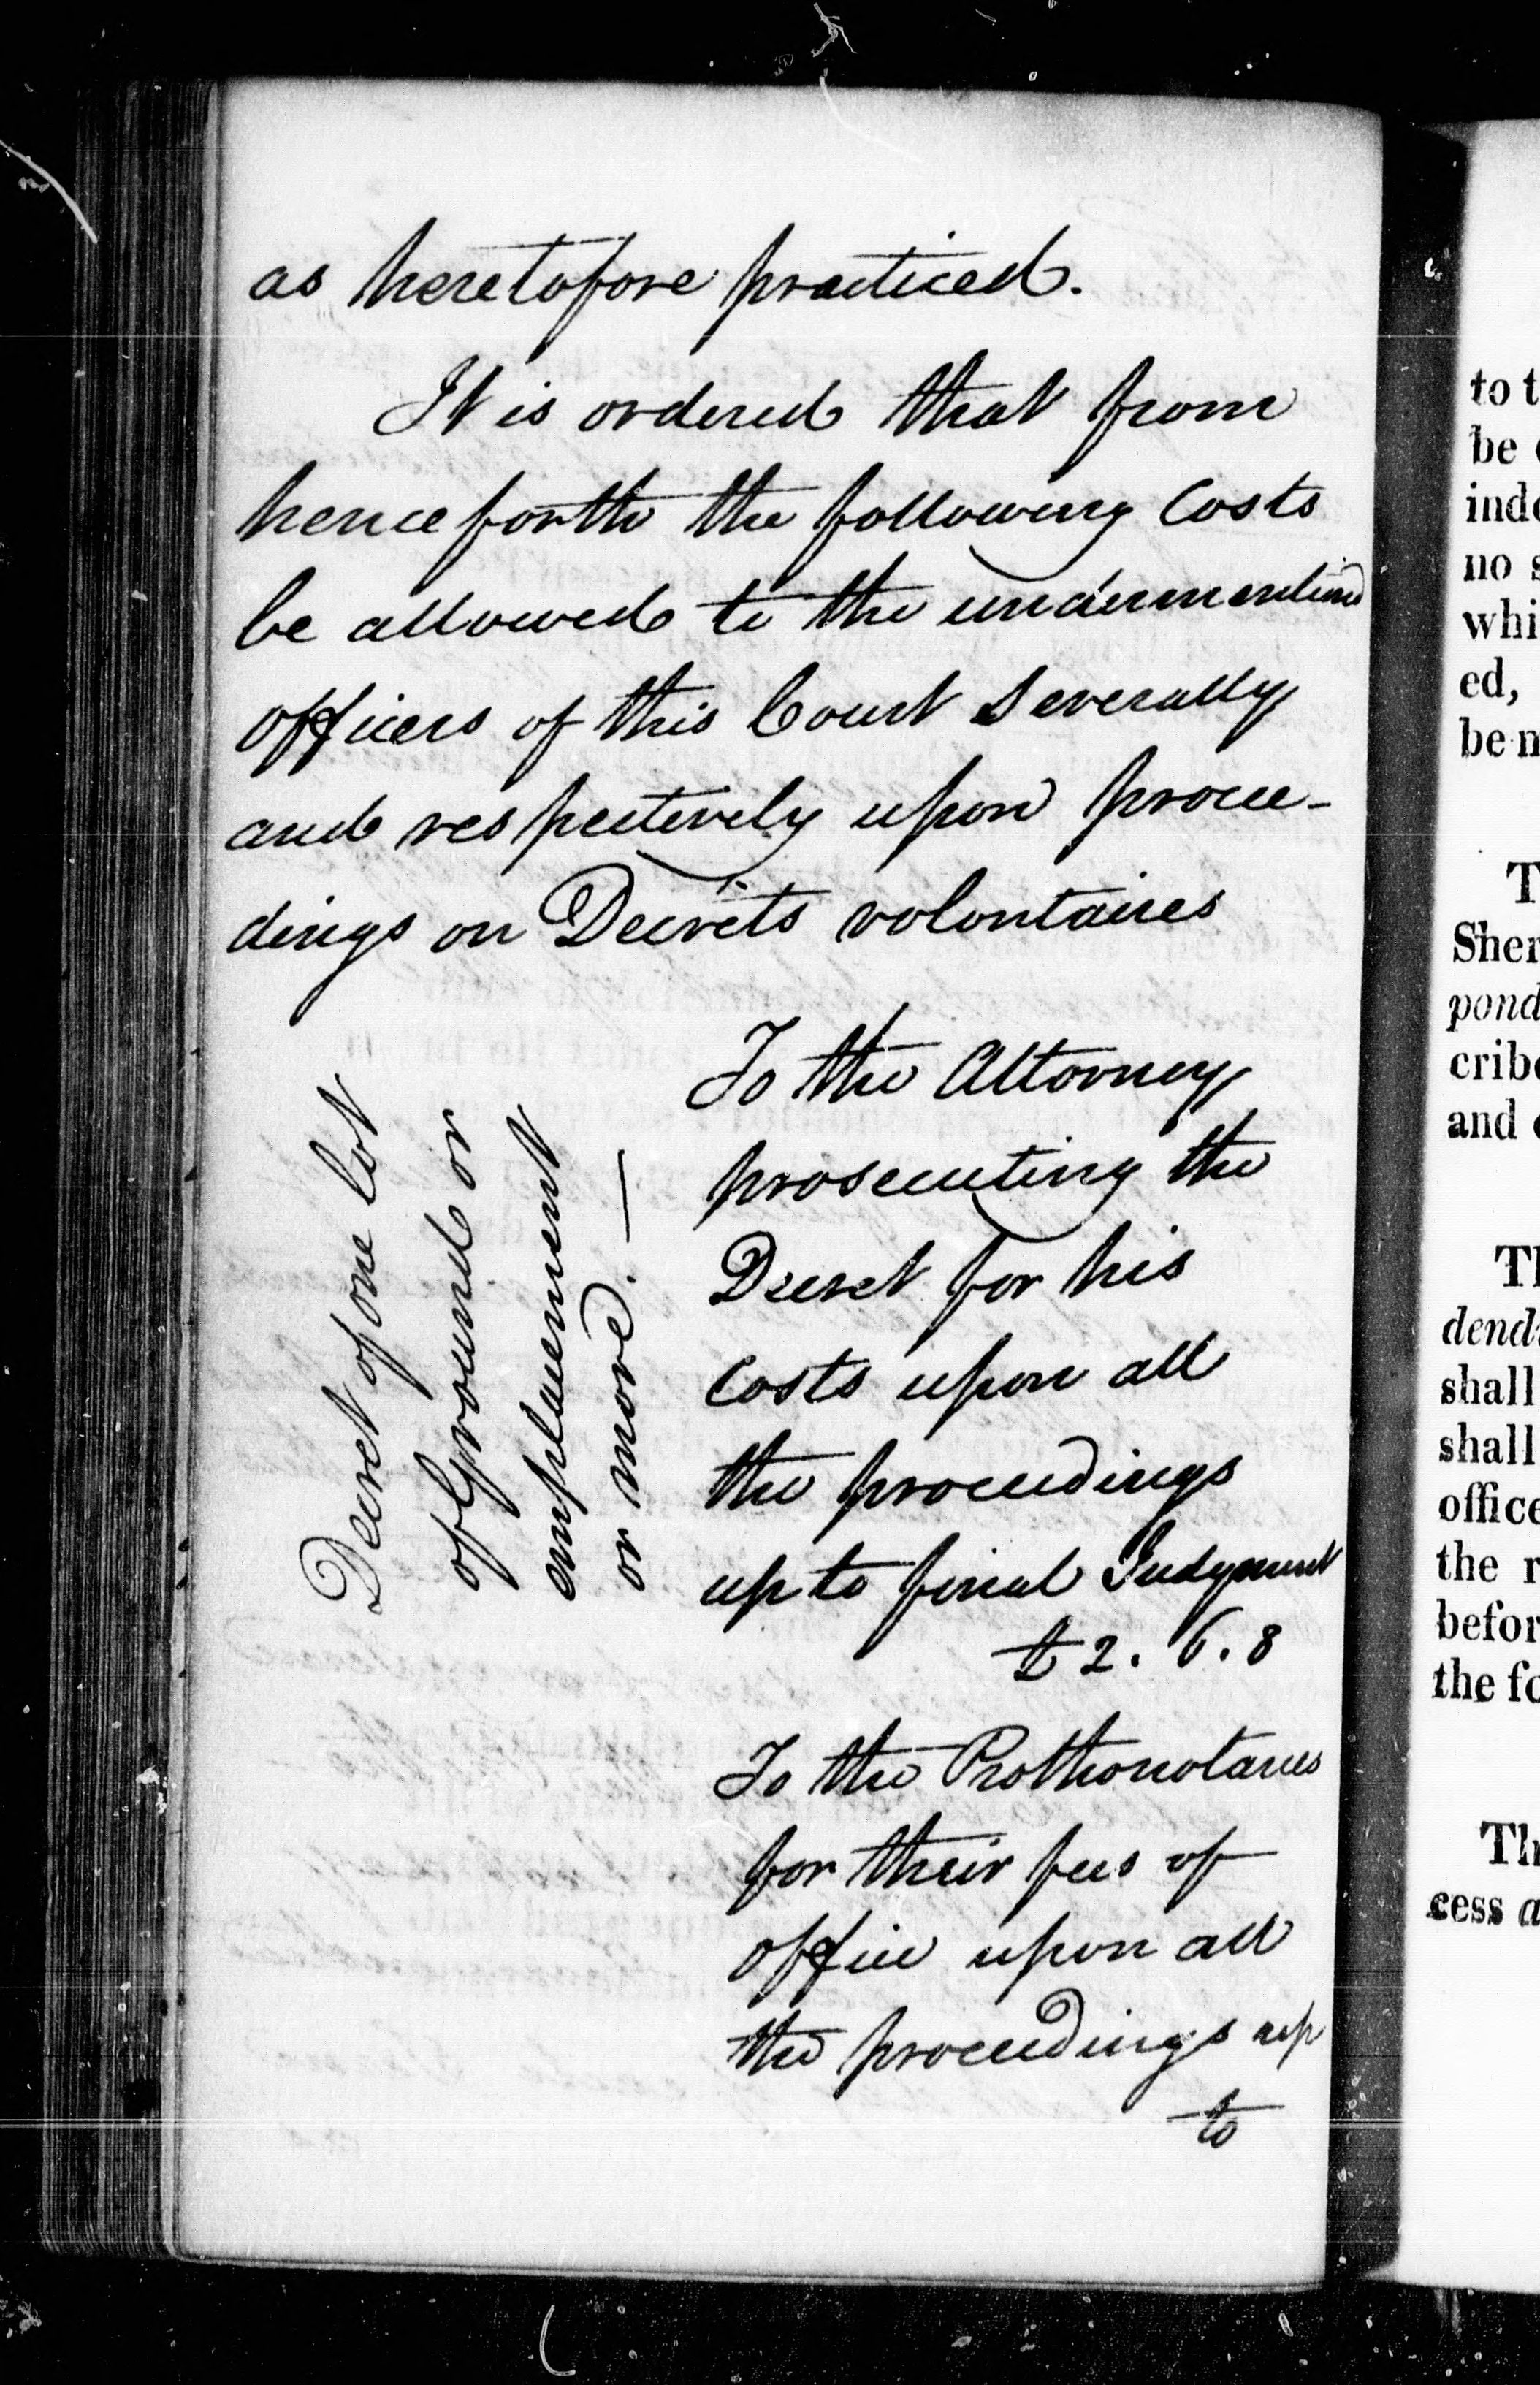 as heretofore practiced.
It is ordered that from
henceforth the following Costs
be allowed to the undermentioned
officers of this Court Severally
and respectively upon procee-
dings on Decrèts volontaires
Decret of one lot
of Ground or
emplacement
or more. —
To the Attorney
prosecuting the
Decret for his
Costs upon all
the proceedings
up to final Judgment
£ 2. 6. 8
To the Prothonotaries
for their fees of
office upon all
the proceedings up
to
to t
be
inde
no s
whi
ed,
be n
T
Sher
pond
cribe
and
Th
dend
shall
shall
office
the r
befor
the fo
Th
cess a